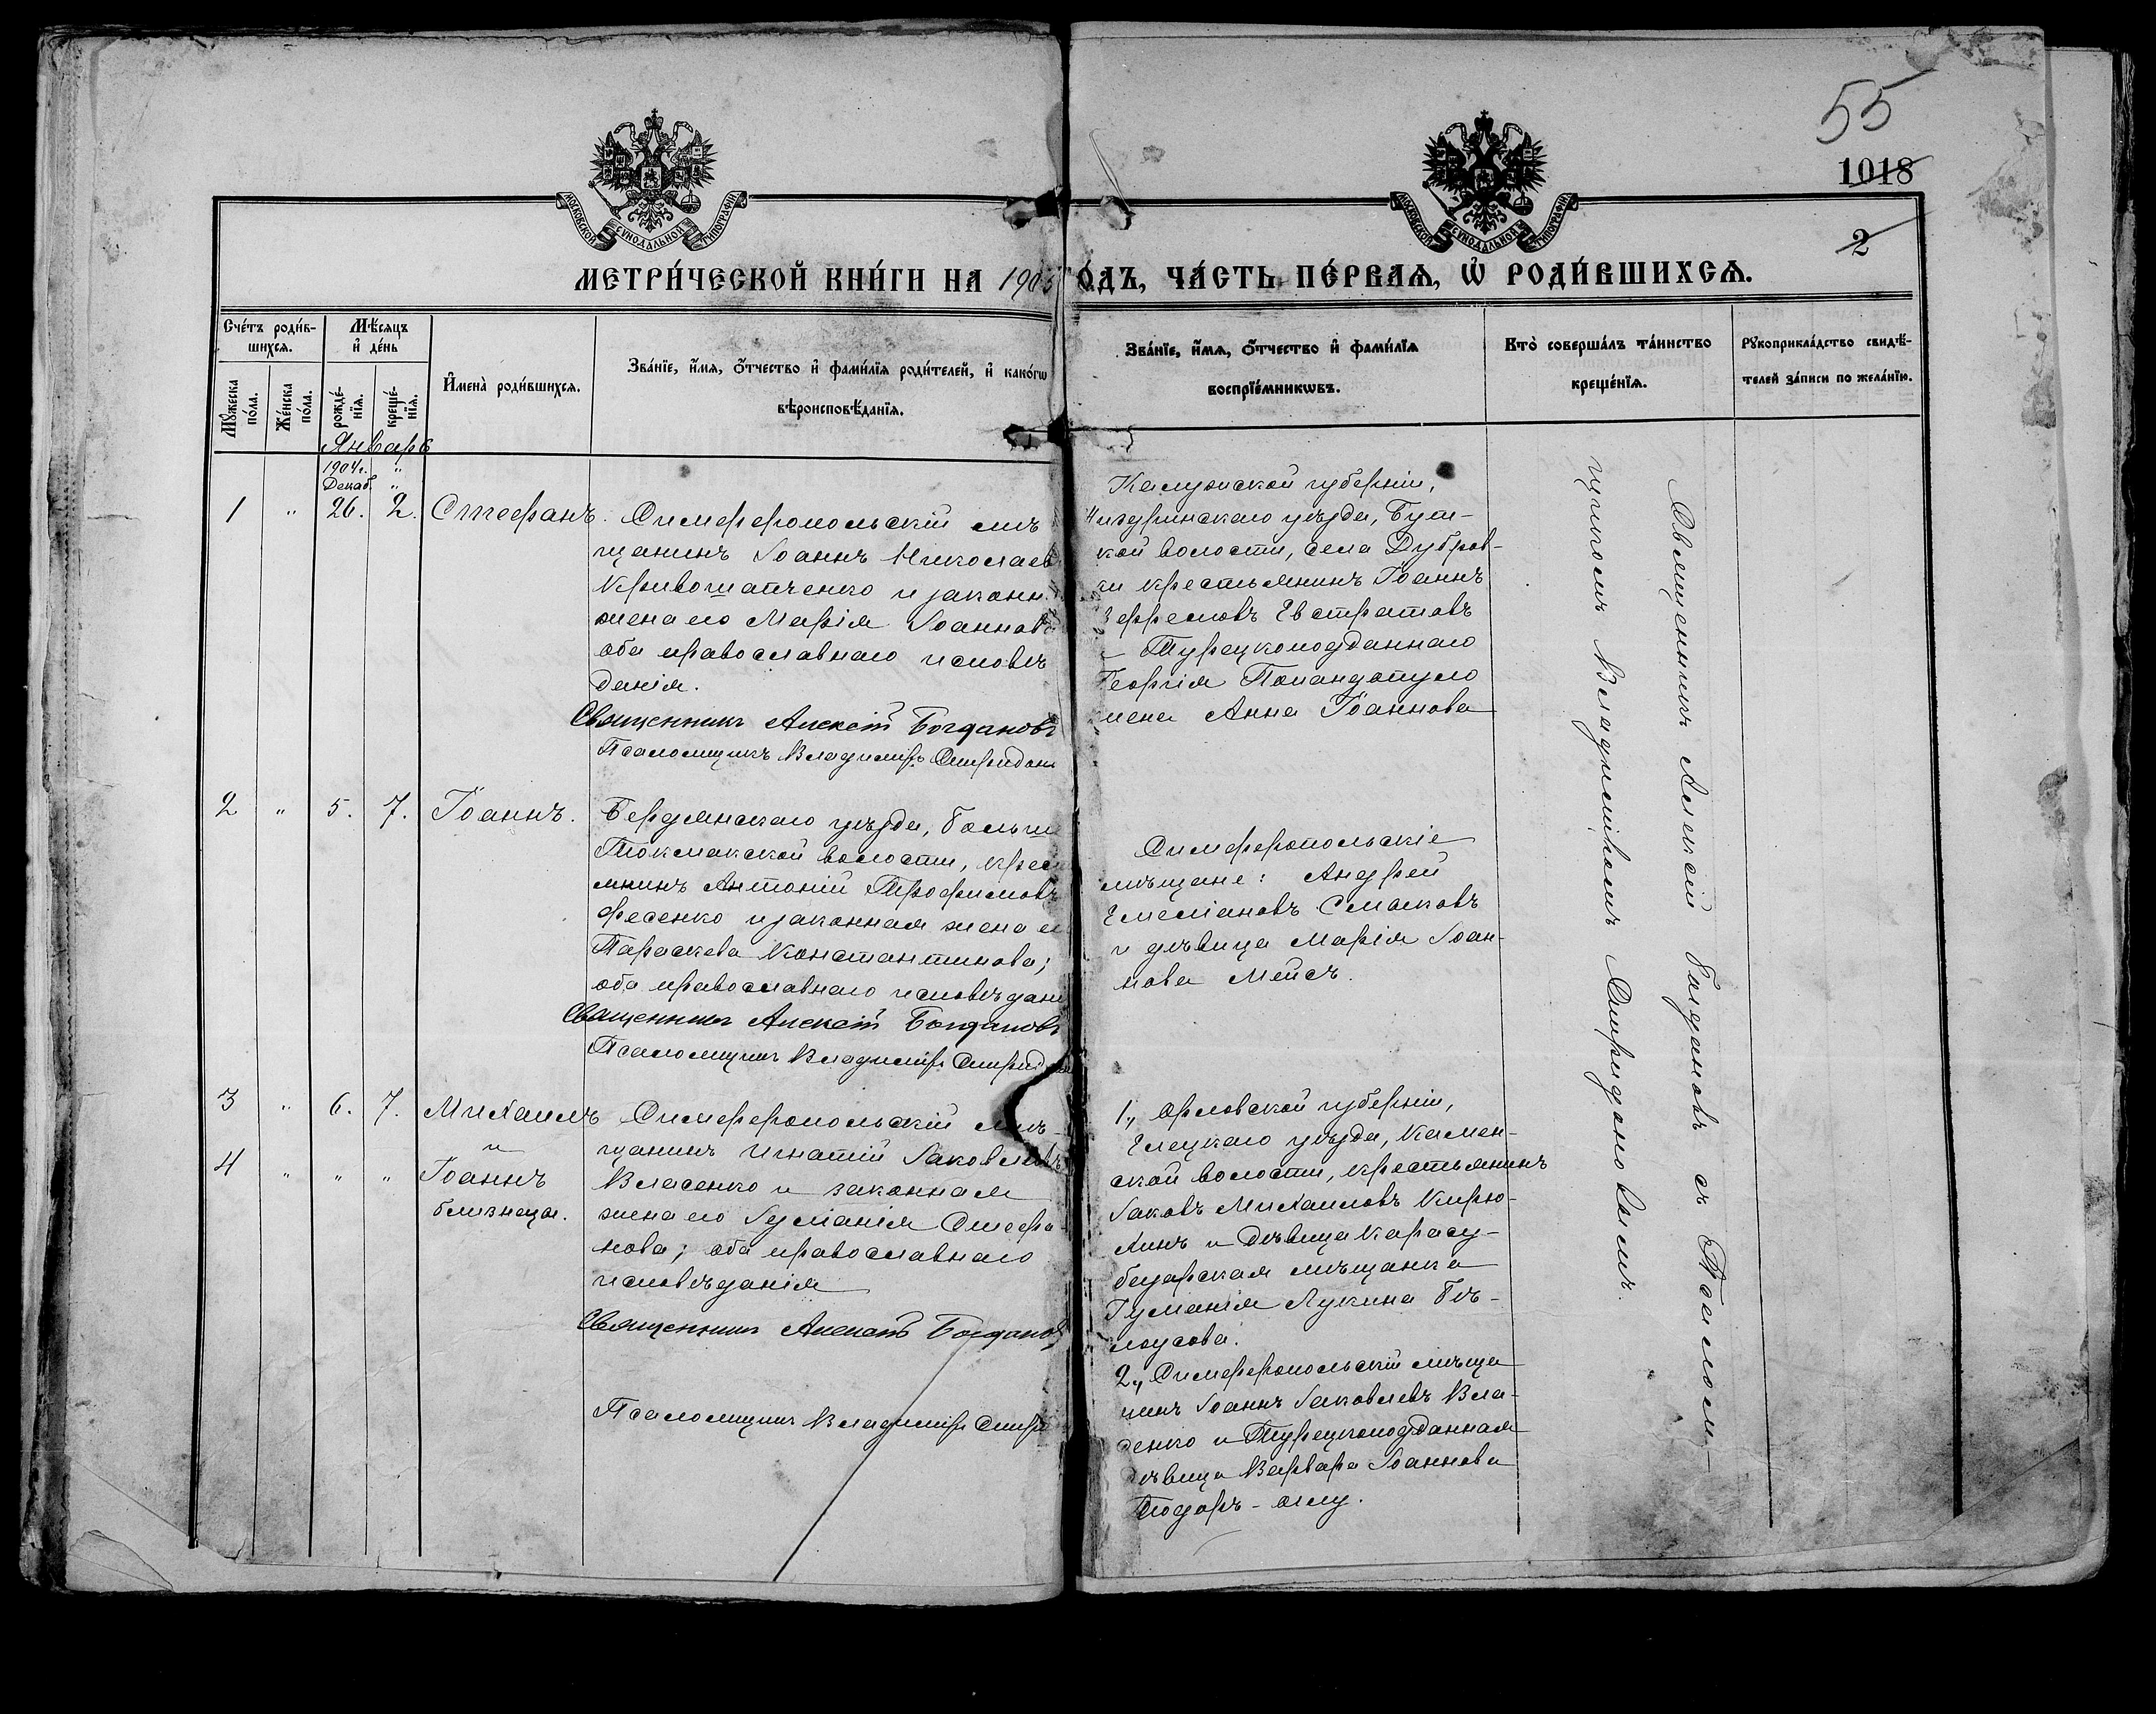 55
1018
2
МОСКОВСКОЙ СѴНОДАЛЬНОЙ ТИПОГРАФІИ
МОСКОВСКОЙ СѴНОДАЛЬНОЙ ТИПОГРАФІИ
МЕТРИ́ЧЕСКОЙ КНИ́ГИ НА 1905 ГО́ДЪ, ЧА́СТЬ ПЕ́РВАѦ, Ѡ҆ РОДИ́ВШИХСѦ.
Сче́тъ роди́в-
шихсѧ.
Мѣ́сѧцъ
и҆ де́нь
Мꙋ́жеска
по́ла.
Же́нска
по́ла.
рожде́-
нїѧ.
креще́-
нїѧ.
И҆мена̀ роди́вшихсѧ.
Зва́нїе, и҆́мѧ, ѻ҆́тчество и҆ фами́лїѧ роди́телей, и҆ како́гѡ
вѣроисповѣ́данїѧ.
Зва́нїе, и҆́мѧ, ѻ҆́тчество и҆ фами́лїѧ
воспрїе́мникѡвъ.
Кто̀ соверша́лъ та́инство
креще́нїѧ.
Рꙋкоприкла́дство свидѣ́-
телей за́писи по жела́нїю.
Январь
1904г. "
Декаб. "
1 " 26. 2. Стефанъ. Симферопольскій мѣ
щанинъ Іоаннъ Николаев
Кривошапченко и законн.
жена его Марія Іоаннов
оба православнаго исповѣ
данія.
Священникъ Алексій Богдановъ
Псаломщикъ Владиміръ Спиридон
Калужской губерніи,
уѣзда,
кой волости, села Дубров-
ки крестьянинъ Іоаннъ
Ефремовъ Евстратовъ
и Турецкоподданнаго
Георгія Попандопуло
жена Анна Іоаннова
2 " 5. 7. Іоаннъ. Бердянскаго уѣзда, больше
Токмакской волости, крест
янинъ Антоній Трофимовъ
Фесенко и законная жена ег
Параскева Константинова;
оба православнаго исповѣдані
Священникъ Алексій Богдановъ
Псаломщикъ Владиміръ Спирид
Симферопольскіе
мѣщане: Андрей
Емеліановъ Смаковъ
и дѣвица Марія Іоан-
нова Мейсъ.
3 " 6. 7. Михаилъ Симферопольскій мѣ-
и щанинъ Игнатій Іаковлевъ
4 " " " Іоаннъ Власенко и законная
близнецы. жена его Іуліанія Стефа
нова; оба православнаго
исповѣданія
Священникъ Алексій Богданов
Псаломщикъ Владиміръ Спири
1., Орловской губерніи,
Елецкаго уѣзда, Камен-
ской волости, крестьянинъ
Іаковъ Михаиловъ Кирю-
хинъ и дѣвица Карасу-
базарская мѣщанка
Іуліанія Лукина Бѣ-
лоусова.
2., Симферопольскій мѣща
нинъ Іоаннъ Іаковлевъ Вла-
сенко и Турецкоподданная
дѣвица Варвара Іоаннова
Тодоръ-оглу.
Священникъ Алексій Богдановъ съ Псалом-
щикомъ Владиміромъ Спиридоновымъ.